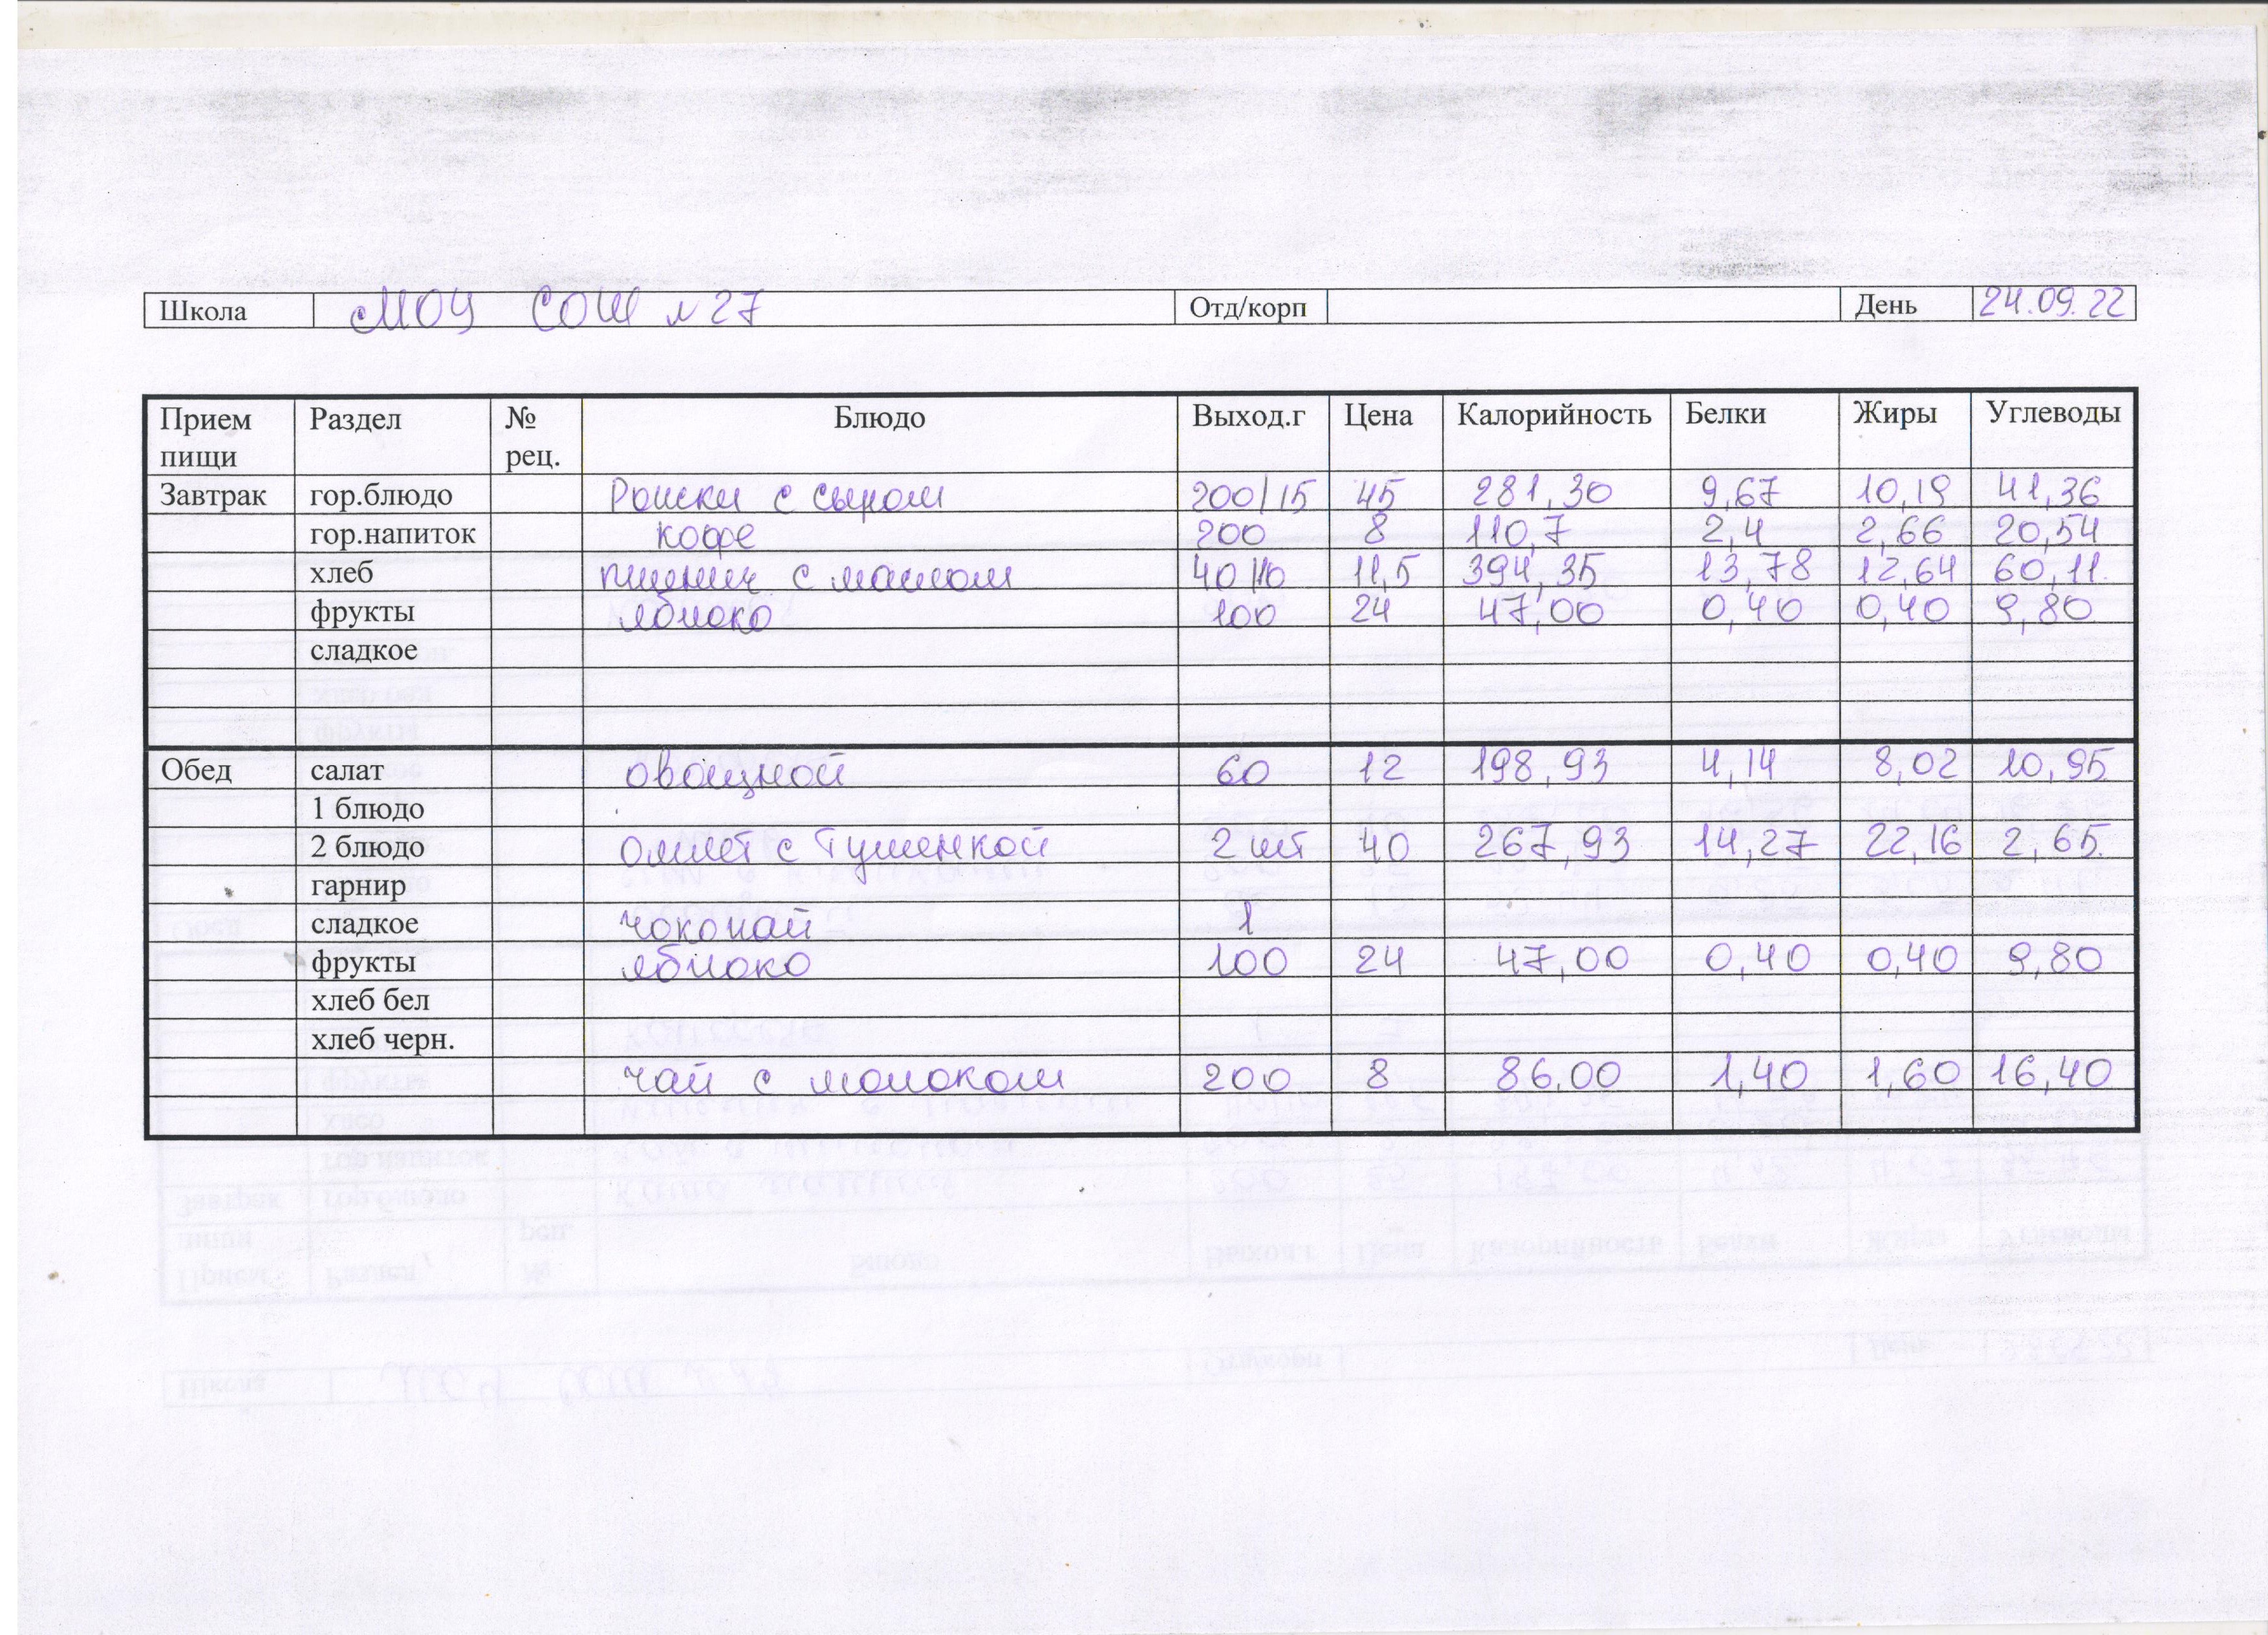 Школа МОУ СОШ №27 Отд/корп День 24.09.22
Прием пищи Раздел № рец. Блюдо Выход.г Цена Калорийность Белки Жиры Углеводы
Завтрак гор.блюдо Рожки с сыром 200/15 45 281,30 9,67 10,19 41,36
гор.напиток кофе 200 8 110,7 2,4 2,66 20,54
хлеб пшенич с маслом 40/10 11,5 394,35 13,78 12,64 60,11
фрукты яблоко 100 24 47,00 0,40 0,40 9,80
сладкое
Обед салат овощной 60 12 198,93 4,14 8,02 10,95
1 блюдо
2 блюдо омлет с тушенкой 2 шт 40 267,93 14,27 22,16 2,65
гарнир
сладкое чокопай 1
фрукты яблоко 100 24 47,00 0,40 0,40 9,80
хлеб бел
хлеб черн.
чай с молоком 200 8 86,00 1,40 1,60 16,40